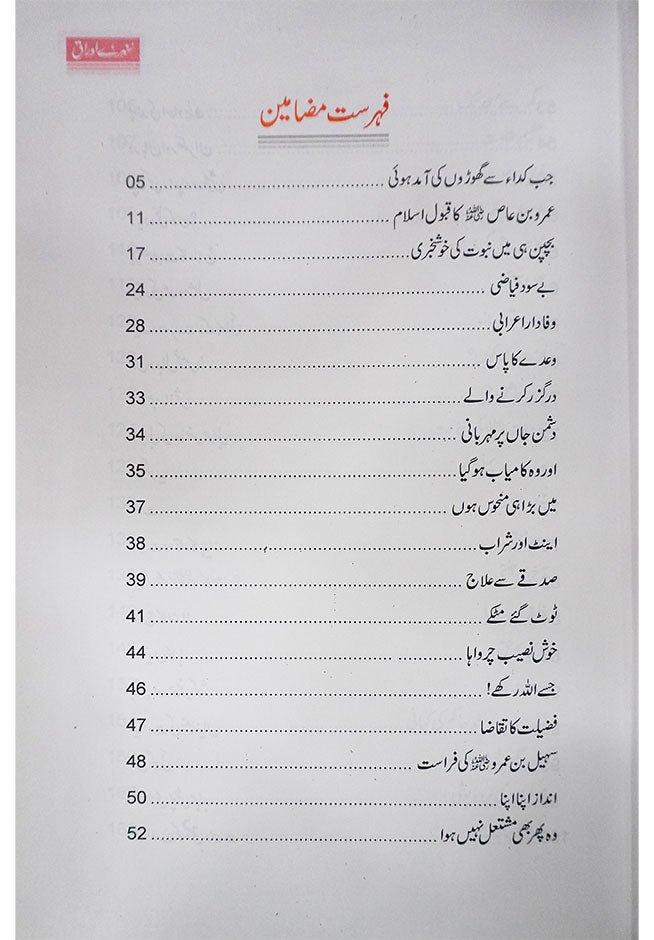 سنہرے اوراق
فہرست مضامین
جب کداء سے گھوڑوں کی آمد ہوئی ........ 05
عمرو بن عاص ﷺ کا قبول اسلام ........ 11
بچپن ہی میں نبوت کی خوشخبری ........ 17
بے سود فیاضی ........ 24
وفادار اعرابی ........ 28
وعدے کا پاس ........ 31
درگزر کرنے والے ........ 33
دشمن جاں پر مہربانی ........ 34
اور وہ کامیاب ہو گیا ........ 35
میں بڑا ہی منحوس ہوں ........ 37
اینٹ اور شراب ........ 38
صدقے سے علاج ........ 39
ٹوٹ گئے مٹکے ........ 41
خوش نصیب چرواہا ........ 44
جسے اللہ رکھے! ........ 46
فضیلت کا تقاضا ........ 47
سہیل بن عمرو ﷺ کی فراست ........ 48
انداز اپنا اپنا ........ 50
وہ پھر بھی مشتعل نہیں ہوا ........ 52